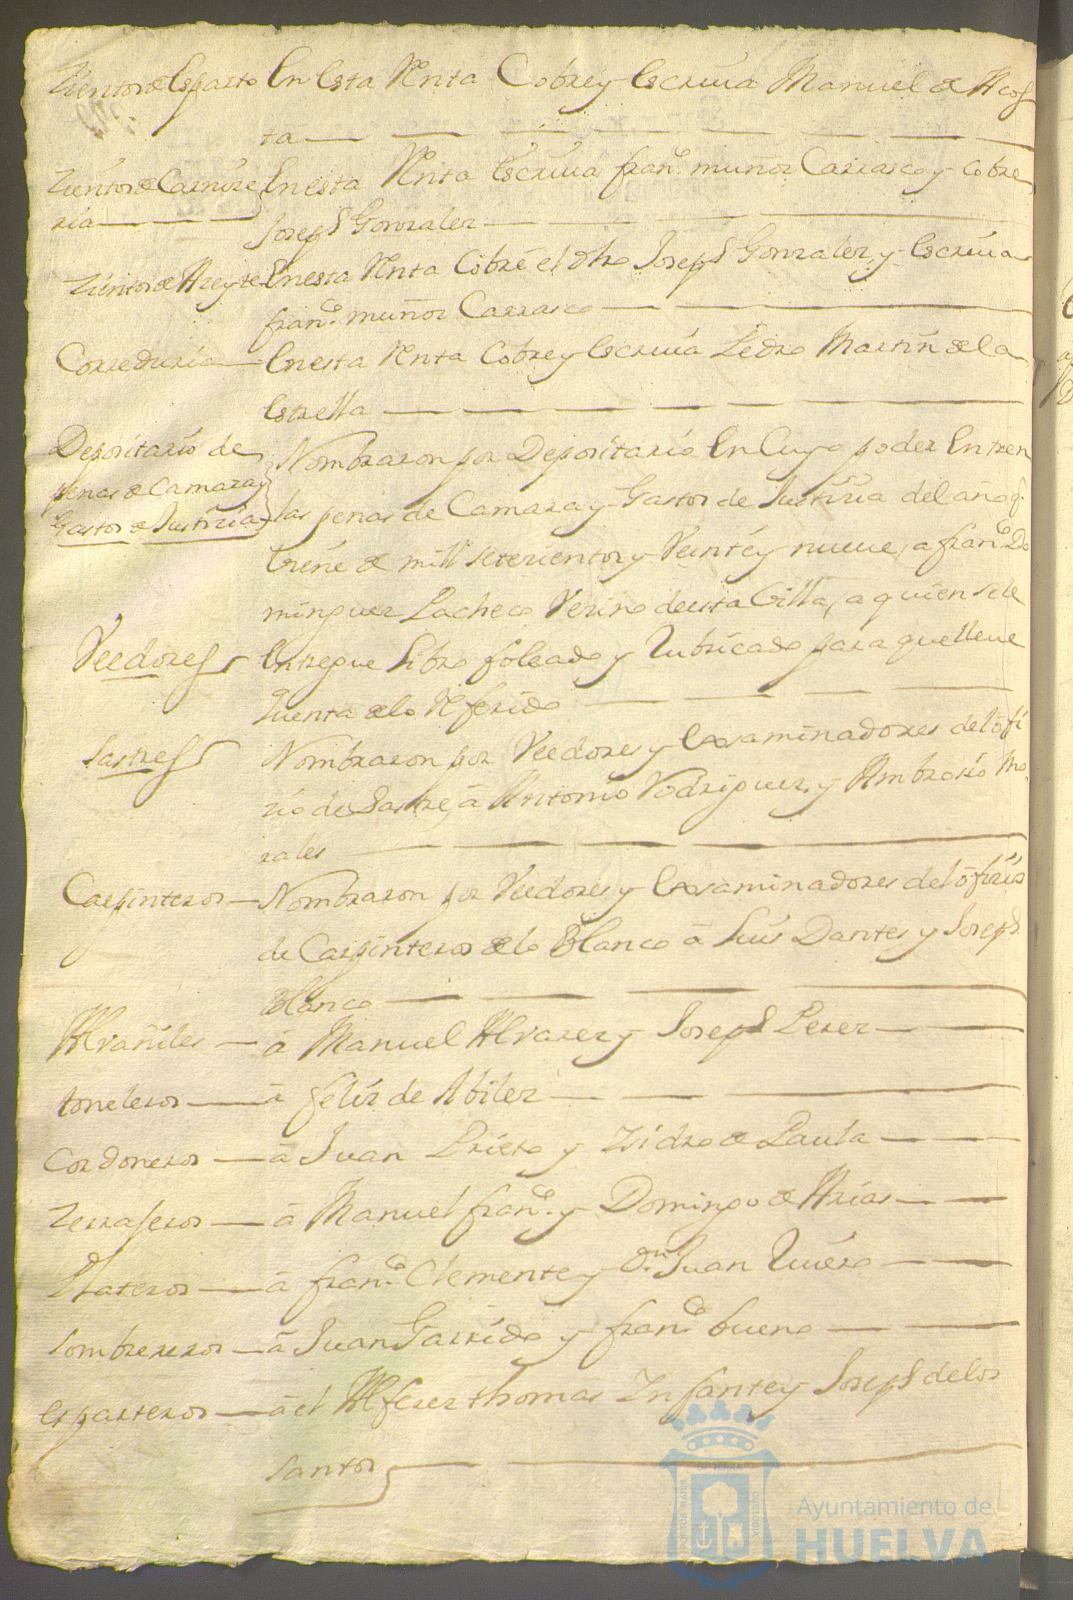 Zientos de Esparto En Esta Renta Cobre y Escriua Manuel de Acos
ta
Zientos de Carnize En esta Renta Escriua fran.co muñoz Carrasco y Cobre
ria Joseph Gonzalez
Zientos de Azeyte En esta Renta Cobre el dho Joseph Gonzalez, y Escriua
fran.co muñoz Carrasco
Correduria En esta Renta Cobre y Escriua Pedro Martin de la
Estrella
Depositario de Nombraron por Depositario En Cuyo poder Entren
penas de Camara y las penas de Camara y Gastos de Justizia del año q.
Gastos de Justizia
biene de mill setezientos y Veinte y nueue, a fran.co Do
minguez Pacheco Vezino de esta Villa, a quien se le
Veedores Entregue Libro foleado y Rubricado para que lleue
quenta de lo Referido
Sastres Nombraron por Veedores y Examinadores del ofi
zio de Sastre â Antonio Rodriguez, y Ambrosio Mo
rales
Carpinteros Nombraron por Veedores y Examinadores del ofizio
de Carpinteros de lo Blanco â Luis Dantes y Joseph
Blanco
Alvañiles â Manuel Alvarez y Joseph Perez
toneleros â feliz de Abilez
Cordoneros â Juan Prieto y Zidro de Paula
Zerrajeros â Manuel fran.co y Domingo de Arias
Plateros â fran.co Clemente y Dn. Juan Quiero
Sombrereros â Juan Garrido y fran.co bueno
Esparteros â el Alferez thomas Infante y Joseph de los
Santos
Ayuntamiento de
HUELVA